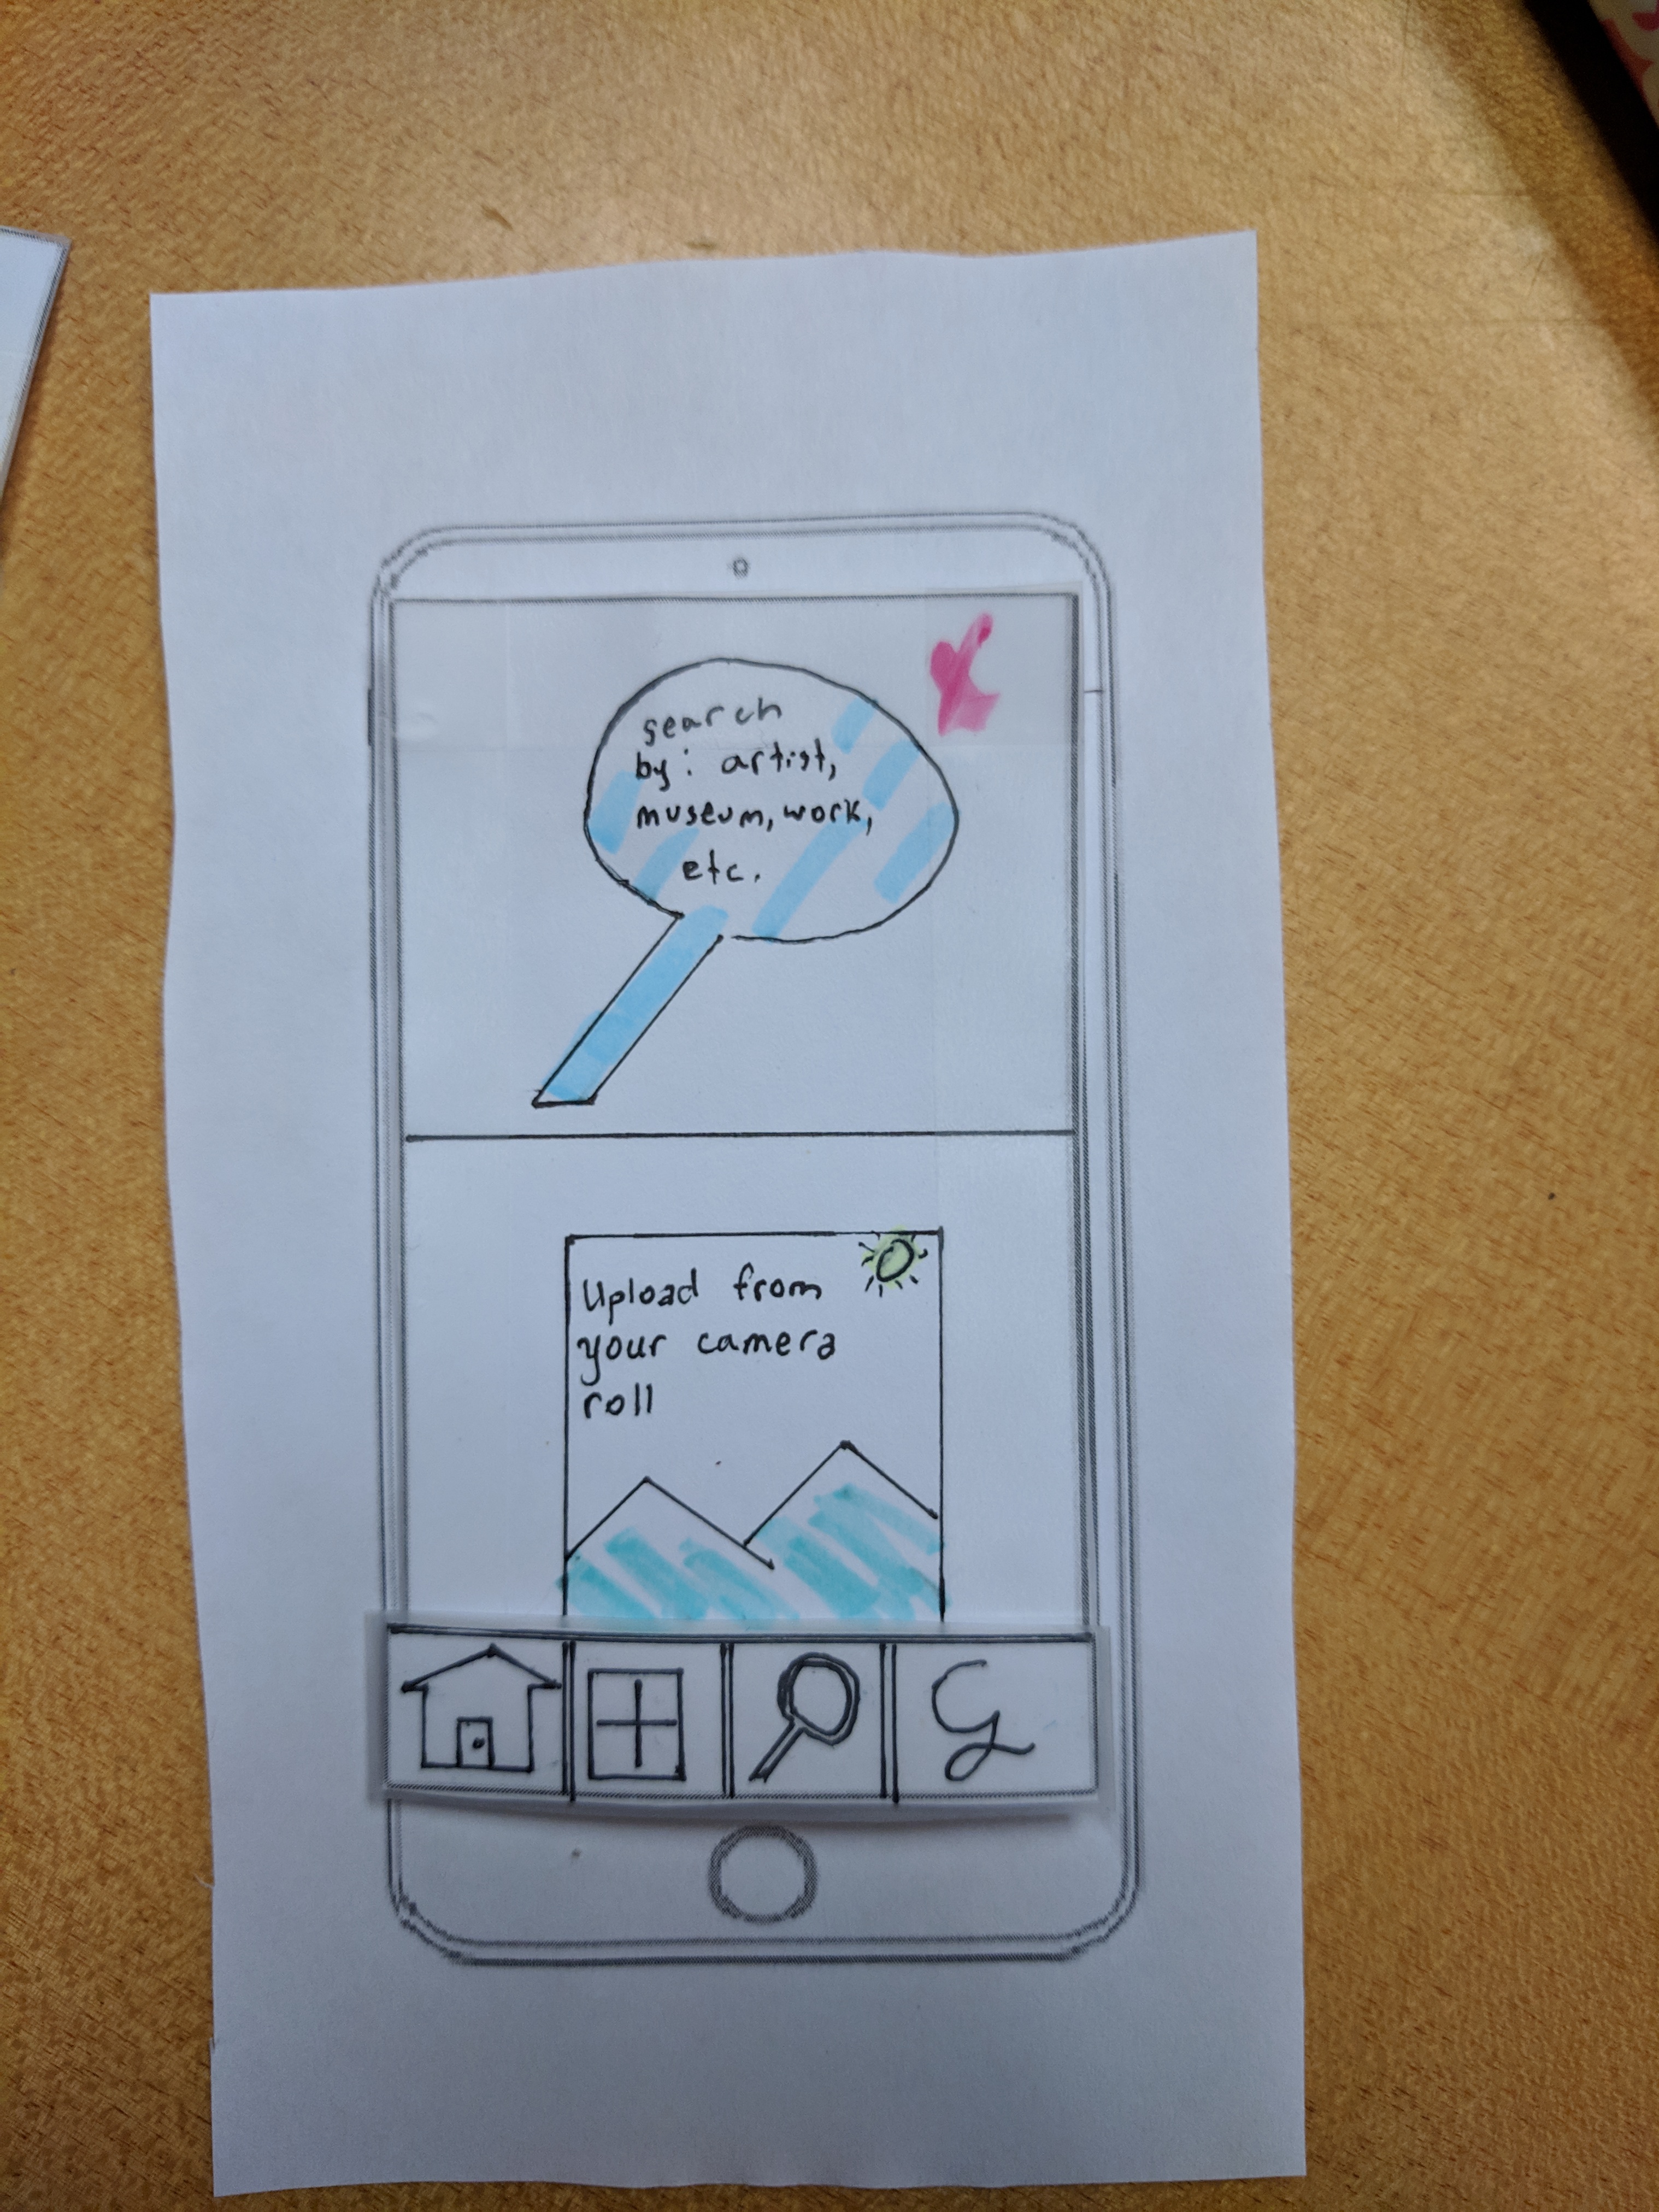 search
by: artist,
museum, work,
etc.
Upload from
your camera
roll
G